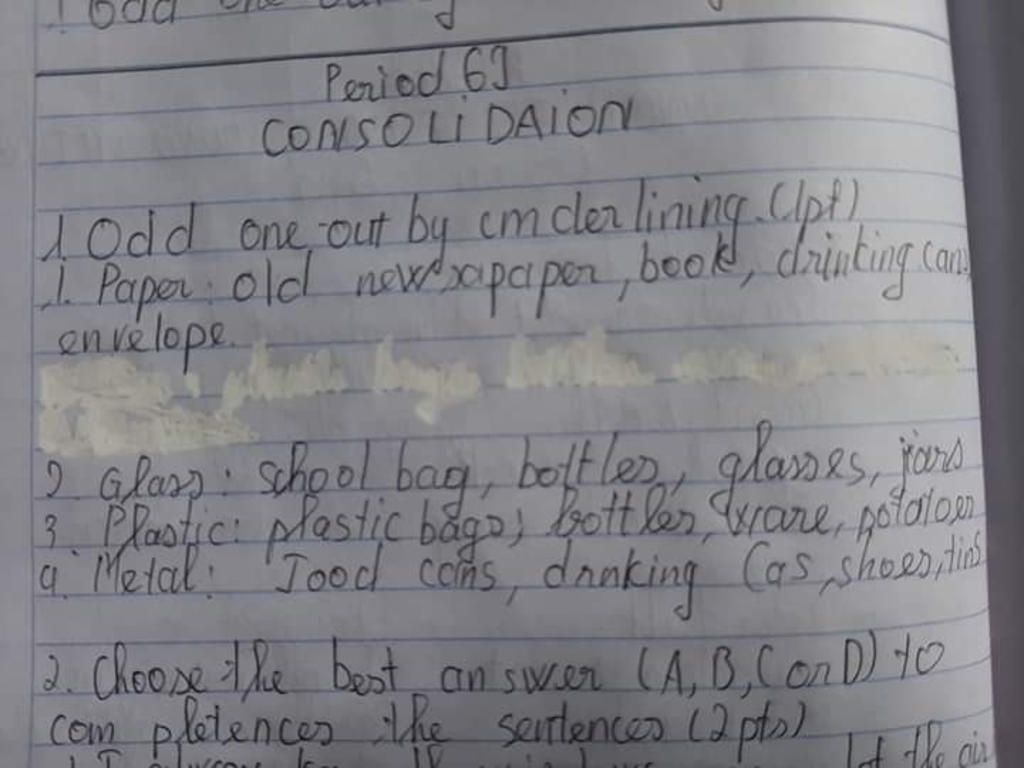 1. Odd one
Period 69
CONSOLIDAION
1. Odd one out by cmderlining. (1pt)
1. Paper: old newsapaper, book, drinking cans
envelope.
2. Glass: school bag, bottles, glasses, jars
3. Plastic: plastic bags, bottles, ware, potatoes
4. Metal: Jood cans, drinking Cas, shoes, tins
2. Choose the best answer (A, B, C or D) to
com pletences the sentences (2 pts)
the air